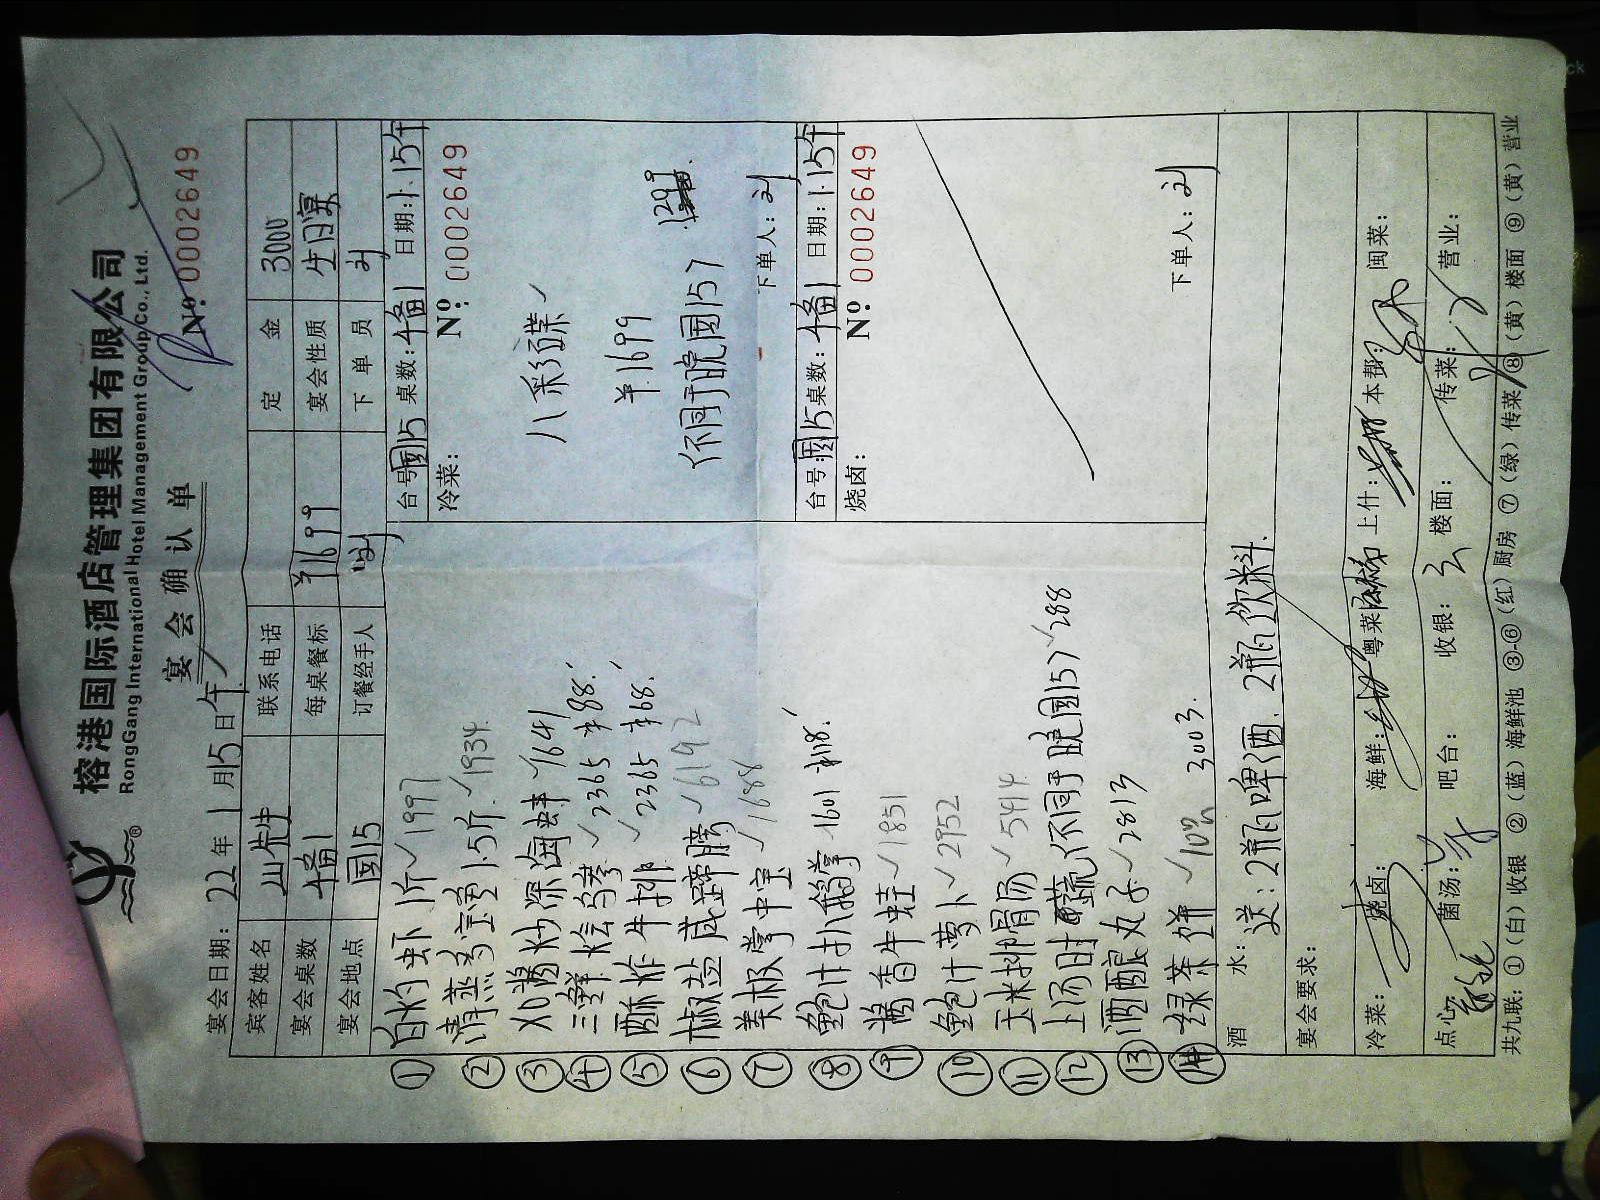 榕港国际酒店管理集团有限公司
RongGang International Hotel Management Group Co., Ltd.
宴会确认单
№: 0002649
宴会日期: 22 年 1 月 15 日 午
宾客姓名 联系电话 定金 3000
宴会桌数 1 每桌餐标 ¥1699 宴会性质 生日宴
宴会地点 国15 订餐经手人 刘 下单员 刘
① 白灼虾1斤 ✓ 1997
② 清蒸多宝鱼1.5斤 ✓ 1934
③ XO酱炒深海蚌 ✓ 1641
④ 三鲜烩乌参 ✓ 2365 ¥88
⑤ 酥炸牛排 ✓ 2365 ¥68
⑥ 椒盐咸蹄膀 ✓ 6192
⑦ 美极掌中宝 ✓ 1688
⑧ 鲍汁扒鹅掌 1601 ¥118
⑨ 酱香牛蛙 ✓ 1851
⑩ 鲍汁萝卜 ✓ 2952
⑪ 玉米排骨汤 ✓ 5414
⑫ 上汤时蔬(不同于晚国15) ✓ 288
⑬ 酒酿丸子 ✓ 2813
⑭ 绿茶饼 ✓ 3003
台号: 国15 桌数: 1 日期: 1.15午
冷菜: №: 0002649
八彩碟 ✓
¥1699
(不同于晚国15) 129
下单人: 刘
台号: 国15 桌数: 1 日期: 1.15午
烧卤: №: 0002649
下单人: 刘
酒水: 送: 2瓶啤酒. 2瓶饮料.
宴会要求:
冷菜: 烧卤: 海鲜: 粤菜: 上什: 本帮: 闽菜:
点心: 菌汤: 吧台: 收银: 楼面: 传菜: 营业:
共九联: ①(白)收银 ②(蓝)海鲜池 ③-⑥(红)厨房 ⑦(绿)传菜 ⑧(黄)楼面 ⑨(黄)营业